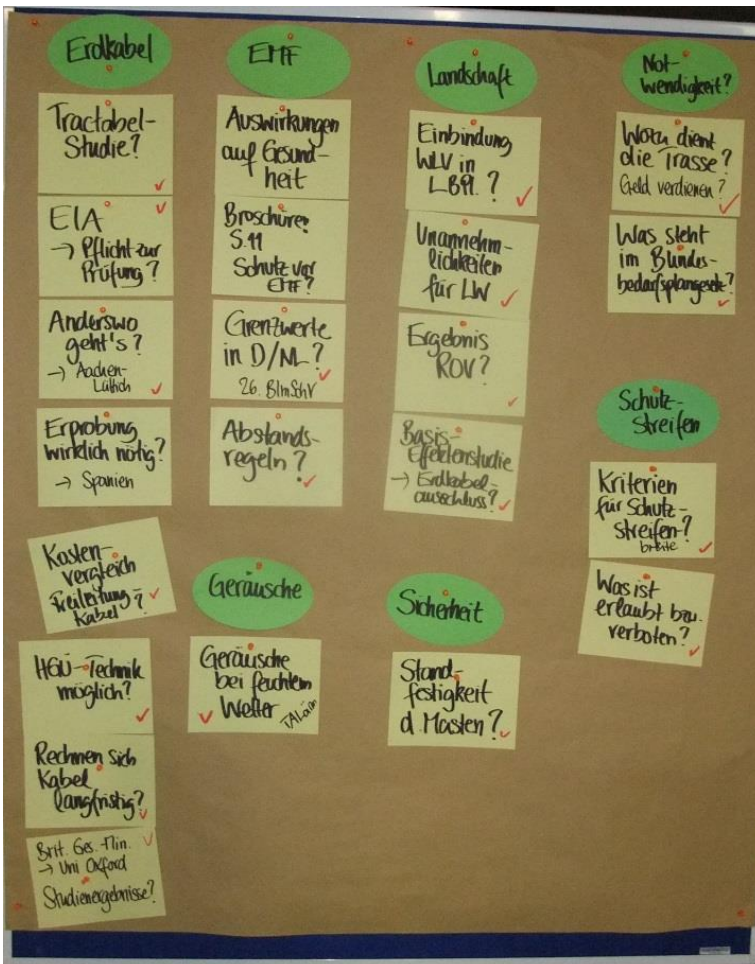 Erdkabel
Tractabel-
Studie?
EIA
→ Pflicht zur
Prüfung?
Anderswo
geht's?
→ Aachen-
Lüttich
Erprobung
wirklich nötig?
→ Spanien
Kosten-
vergleich
Freileitung-
Kabel?
HGÜ-Technik
möglich?
Rechnen sich
Kabel
langfristig?
Brit. Ges.-Min.
→ Uni Oxford
Studienergebnisse?
EMF
Auswirkungen
auf Gesund-
heit
Broschüre
S.11
Schutz vor
EMF?
Grenzwerte
in D/NL?
26. BImSchV
Abstands-
regeln?
Geräusche
Geräusche
bei feuchtem
Wetter
TALärm
Landschaft
Einbindung
WLV in
LBPl.?
Unannehm-
lichkeiten
für LW
Ergebnis
ROV?
Basis-
Effektenstudie
→ Erdkabel-
ausschluss?
Sicherheit
Stand-
festigkeit
d. Masten?
Not-
wendigkeit?
Wozu dient
die Trasse?
Geld verdienen?
Was steht
im Bundes-
bedarfsplangesetz?
Schutz-
streifen
Kriterien
für Schutz-
streifen-?
breite
Was ist
erlaubt bzw.
verboten?